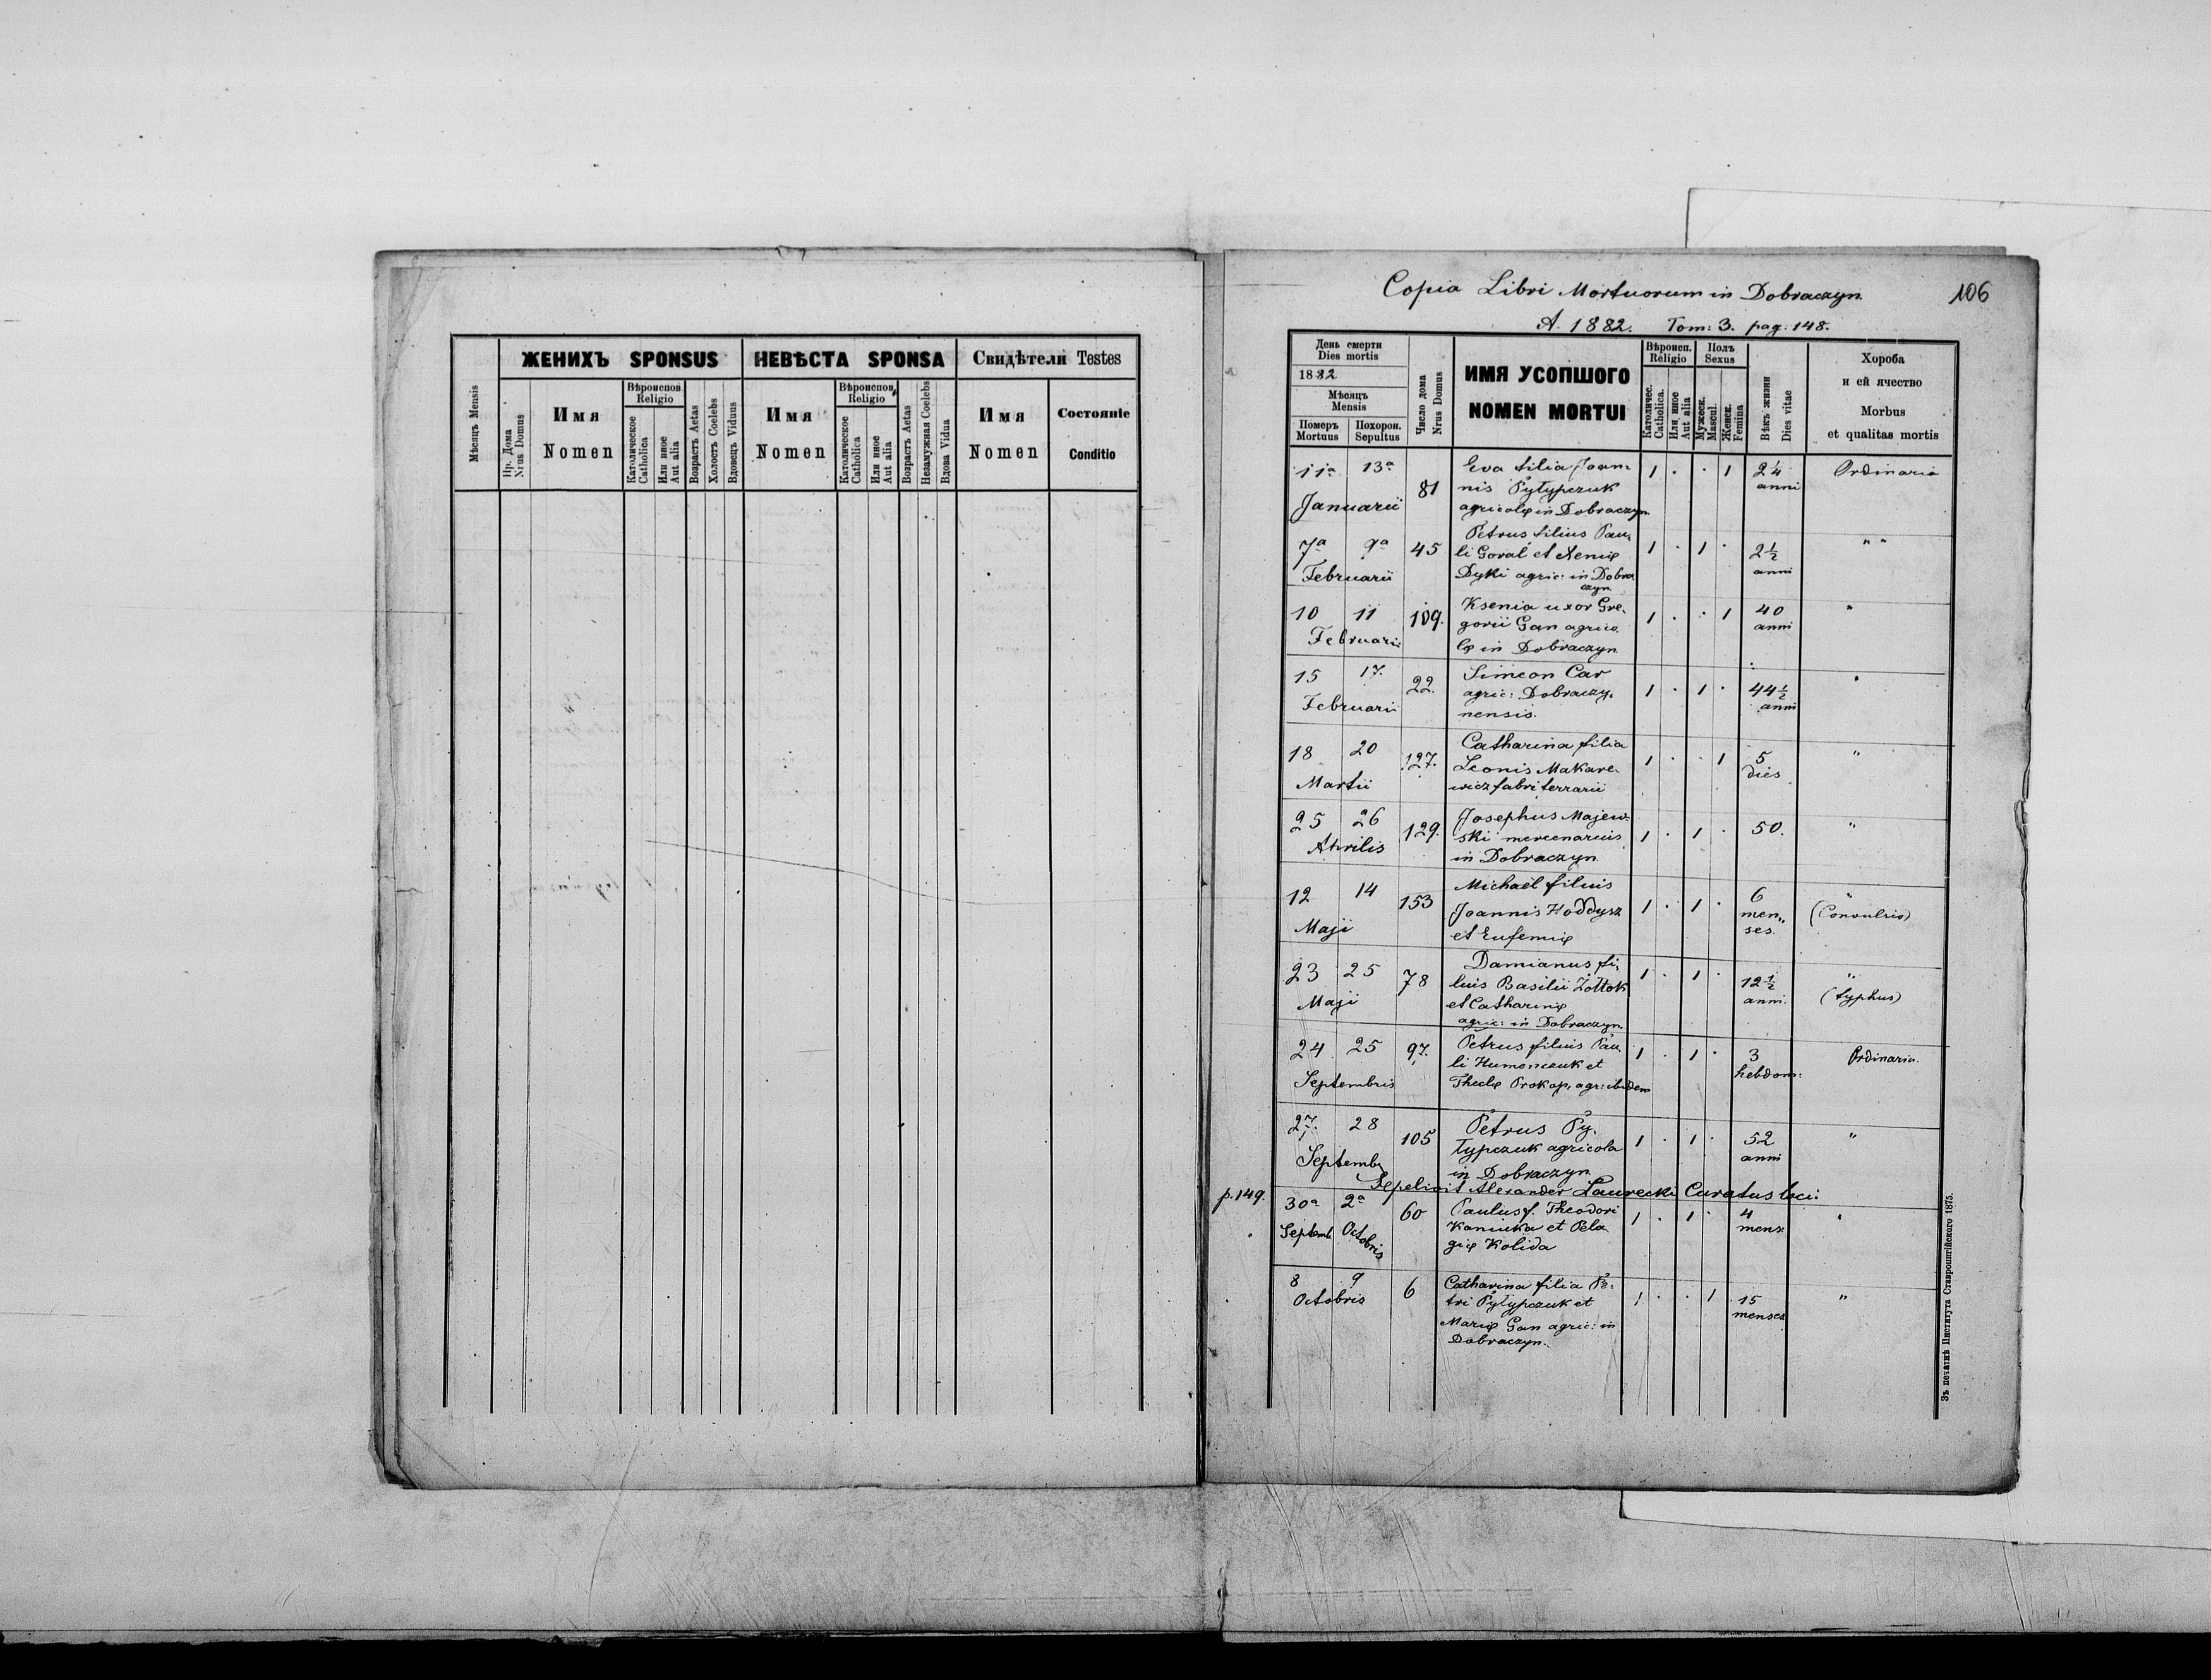 ЖЕНИХЪ SPONSUS
НЕВѢСТА SPONSA
Свидѣтели Testes
Мѣсяцъ Mensis
Нр. Дома
Nrus Domus
Имя
Nomen
Вѣроиспов.
Religio
Католическое
Catholica
Или иное
Aut alia
Возрастъ Aetas
Холостъ Coelebs
Вдовецъ Viduus
Имя
Nomen
Вѣроиспов.
Religio
Католическое
Catholica
Или иное
Aut alia
Возрастъ Aetas
Незамужная Coelebs
Вдова Vidua
Имя
Nomen
Состояніе
Conditio
Copia Libri Mortuorum in Dobraczyn
106
A. 1882. Tom: 3. pag: 148.
День смерти
Dies mortis
1882
Мѣсяцъ
Mensis
Померъ
Mortuus
Похорон.
Sepultus
Число дома
Nrus Domus
ИМЯ УСОПШОГО
NOMEN MORTUI
Вѣроисп.
Religio
Католичес.
Catholica.
Или иное
Aut alia
Полъ
Sexus
Мужеск.
Mascul.
Женск.
Femina
Вѣкъ жизни
Dies vitae
Хороба
и ей ячество
Morbus
et qualitas mortis
11a 13a
Januarii
81
Eva filia Joan-
nis Pyłypczuk
agricolę in Dobraczyn
1 . . 1
2¼
anni
Ordinaria
7a 9a
Februarii
45
Petrus filius Pau-
li Goral et Xenię
Dyki agric: in Dobra
czyn
1 . 1 .
2½
anni
" "
10 11
Februarii
109.
Ksenia uxor Gre-
gorii Gan agrico-
lę in Dobraczyn
1 . . 1
40
anni
"
15 17.
Februarii
22.
Simeon Car
agric: Dobraczy-
nensis.
1 . 1 .
44½
anni
"
18 20
Martii
127.
Catharina filia
Leonis Makare-
wicz fabri ferrarii
1 . . 1
5
dies
"
25 26
Aprilis
129.
Josephus Majew-
ski mercenarius
in Dobraczyn
1 . 1 .
50.
"
12 14
Maji
153
Michaël filius
Joannis Hoddysz
et Eufemię
1 . 1 .
6
men-
ses.
"
(Convulsio)
23 25
Maji
78
Damianus fi-
lius Basilii Żołtok
et Catharinę
agric: in Dobraczyn.
1 . 1 .
12½
anni.
"
(typhus)
24 25
Septembris
97.
Petrus filius Pau-
li Humenczuk et
Theclę Prokop, agr: ibidem
1 . 1 .
3
hebdom:
Ordinaria.
27. 28
Septemb
105
Petrus Py-
łypczuk agricola
in Dobraczyn
1 . 1 .
52
anni
"
Sepelivit Alexander Laurecki Curatus loci:
p. 149.
30a 2a
Septemb Octobris
60
Paulus f. Theodori
Kaniuka et Pela
gię Kolida
1 . 1 .
4
mens:
"
8 9
Octobris
6
Catharina filia Pe-
tri Pyłypczuk et
Marię Gan agric: in
Dobraczyn.
1 . . 1
15
menses
"
Зъ печатнѣ Института Ставропигійского 1875.